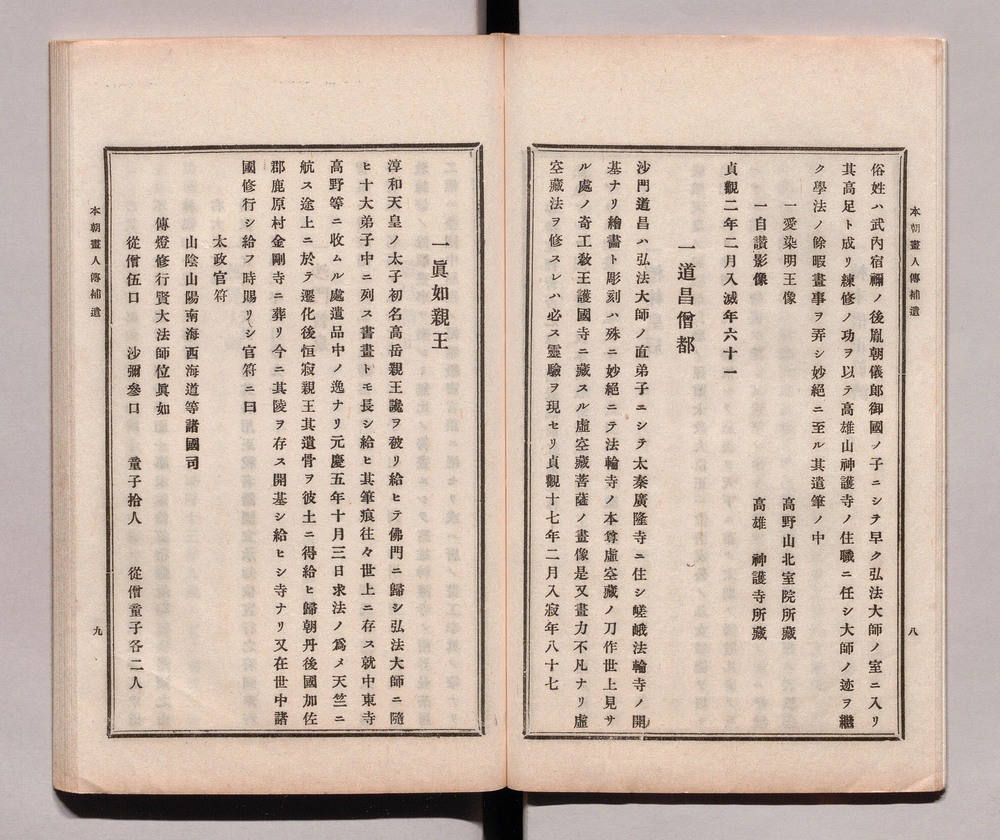 本朝畫人傳補遺
八
俗姓ハ武內宿禰ノ後胤朝儀郎御國ノ子ニシテ早ク弘法大師ノ室ニ入リ
其高足ト成リ練修ノ功ヲ以テ高雄山神護寺ノ住職ニ任シ大師ノ迹ヲ繼
ク學法ノ餘暇畫事ヲ弄シ妙絕ニ至ル其遺筆ノ中
一愛染明王像　高野山北室院所藏
一自讚影像　高雄　神護寺所藏
貞觀二年二月入滅年六十一
一道昌僧都
沙門道昌ハ弘法大師ノ直弟子ニシテ太秦廣隆寺ニ住シ嵯峨法輪寺ノ開
基ナリ繪畫ト彫刻ハ殊ニ妙絕ニテ法輪寺ノ本尊虛空藏ノ刀作世上見サ
ル處ノ奇工敎王護國寺ニ藏スル虛空藏菩薩ノ畫像是又畫力不凡ナリ虛
空藏法ヲ修スレハ必ス靈驗ヲ現セリ貞觀十七年二月入寂年八十七
一眞如親王
淳和天皇ノ太子初名高岳親王讒ヲ被リ給ヒテ佛門ニ歸シ弘法大師ニ隨
ヒ十大弟子中ニ列ス書畫トモ長シ給ヒ其筆痕往々世上ニ存ス就中東寺
高野等ニ收ムル處遺品中ノ逸ナリ元慶五年十月三日求法ノ爲メ天竺ニ
航ス途上ニ於テ遷化後恒寂親王其遺骨ヲ彼土ニ得給ヒ歸朝丹後國加佐
郡鹿原村金剛寺ニ葬リ今ニ其陵ヲ存ス開基シ給ヒシ寺ナリ又在世中諸
國修行シ給フ時賜リシ官符ニ曰
太政官符
山陰山陽南海西海道等諸國司
傳燈修行賢大法師位眞如
從僧伍口　沙彌參口　童子拾人　從僧童子各二人
本朝畫人傳補遺
九